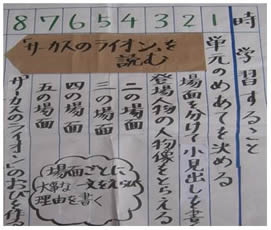 時 学習すること
1 単元のめあてを決める
2 場面を分けて小見出しを書
3 登場人物の人物像をとらえる
「サーカスのライオン」を
読む
4 二の場面
5 三の場面
6 四の場面
7 五の場面
場面ごとに
大事な一文をえらび
理由を書く
8 「サーカスのライオン」のおびを作る